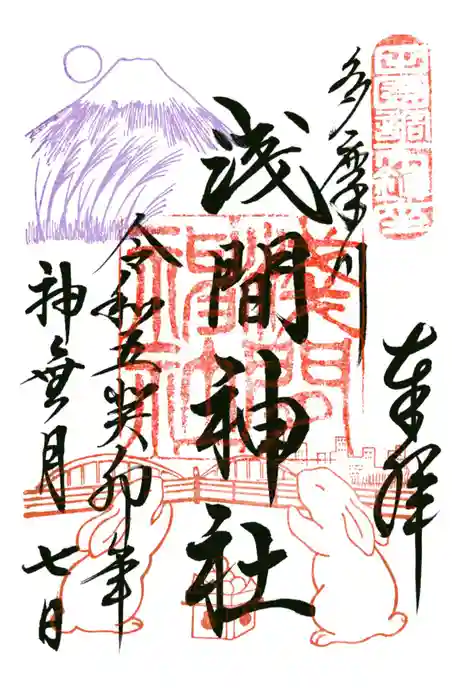 奉拝
多摩川
浅間神社
令和五癸卯年
神無月七日